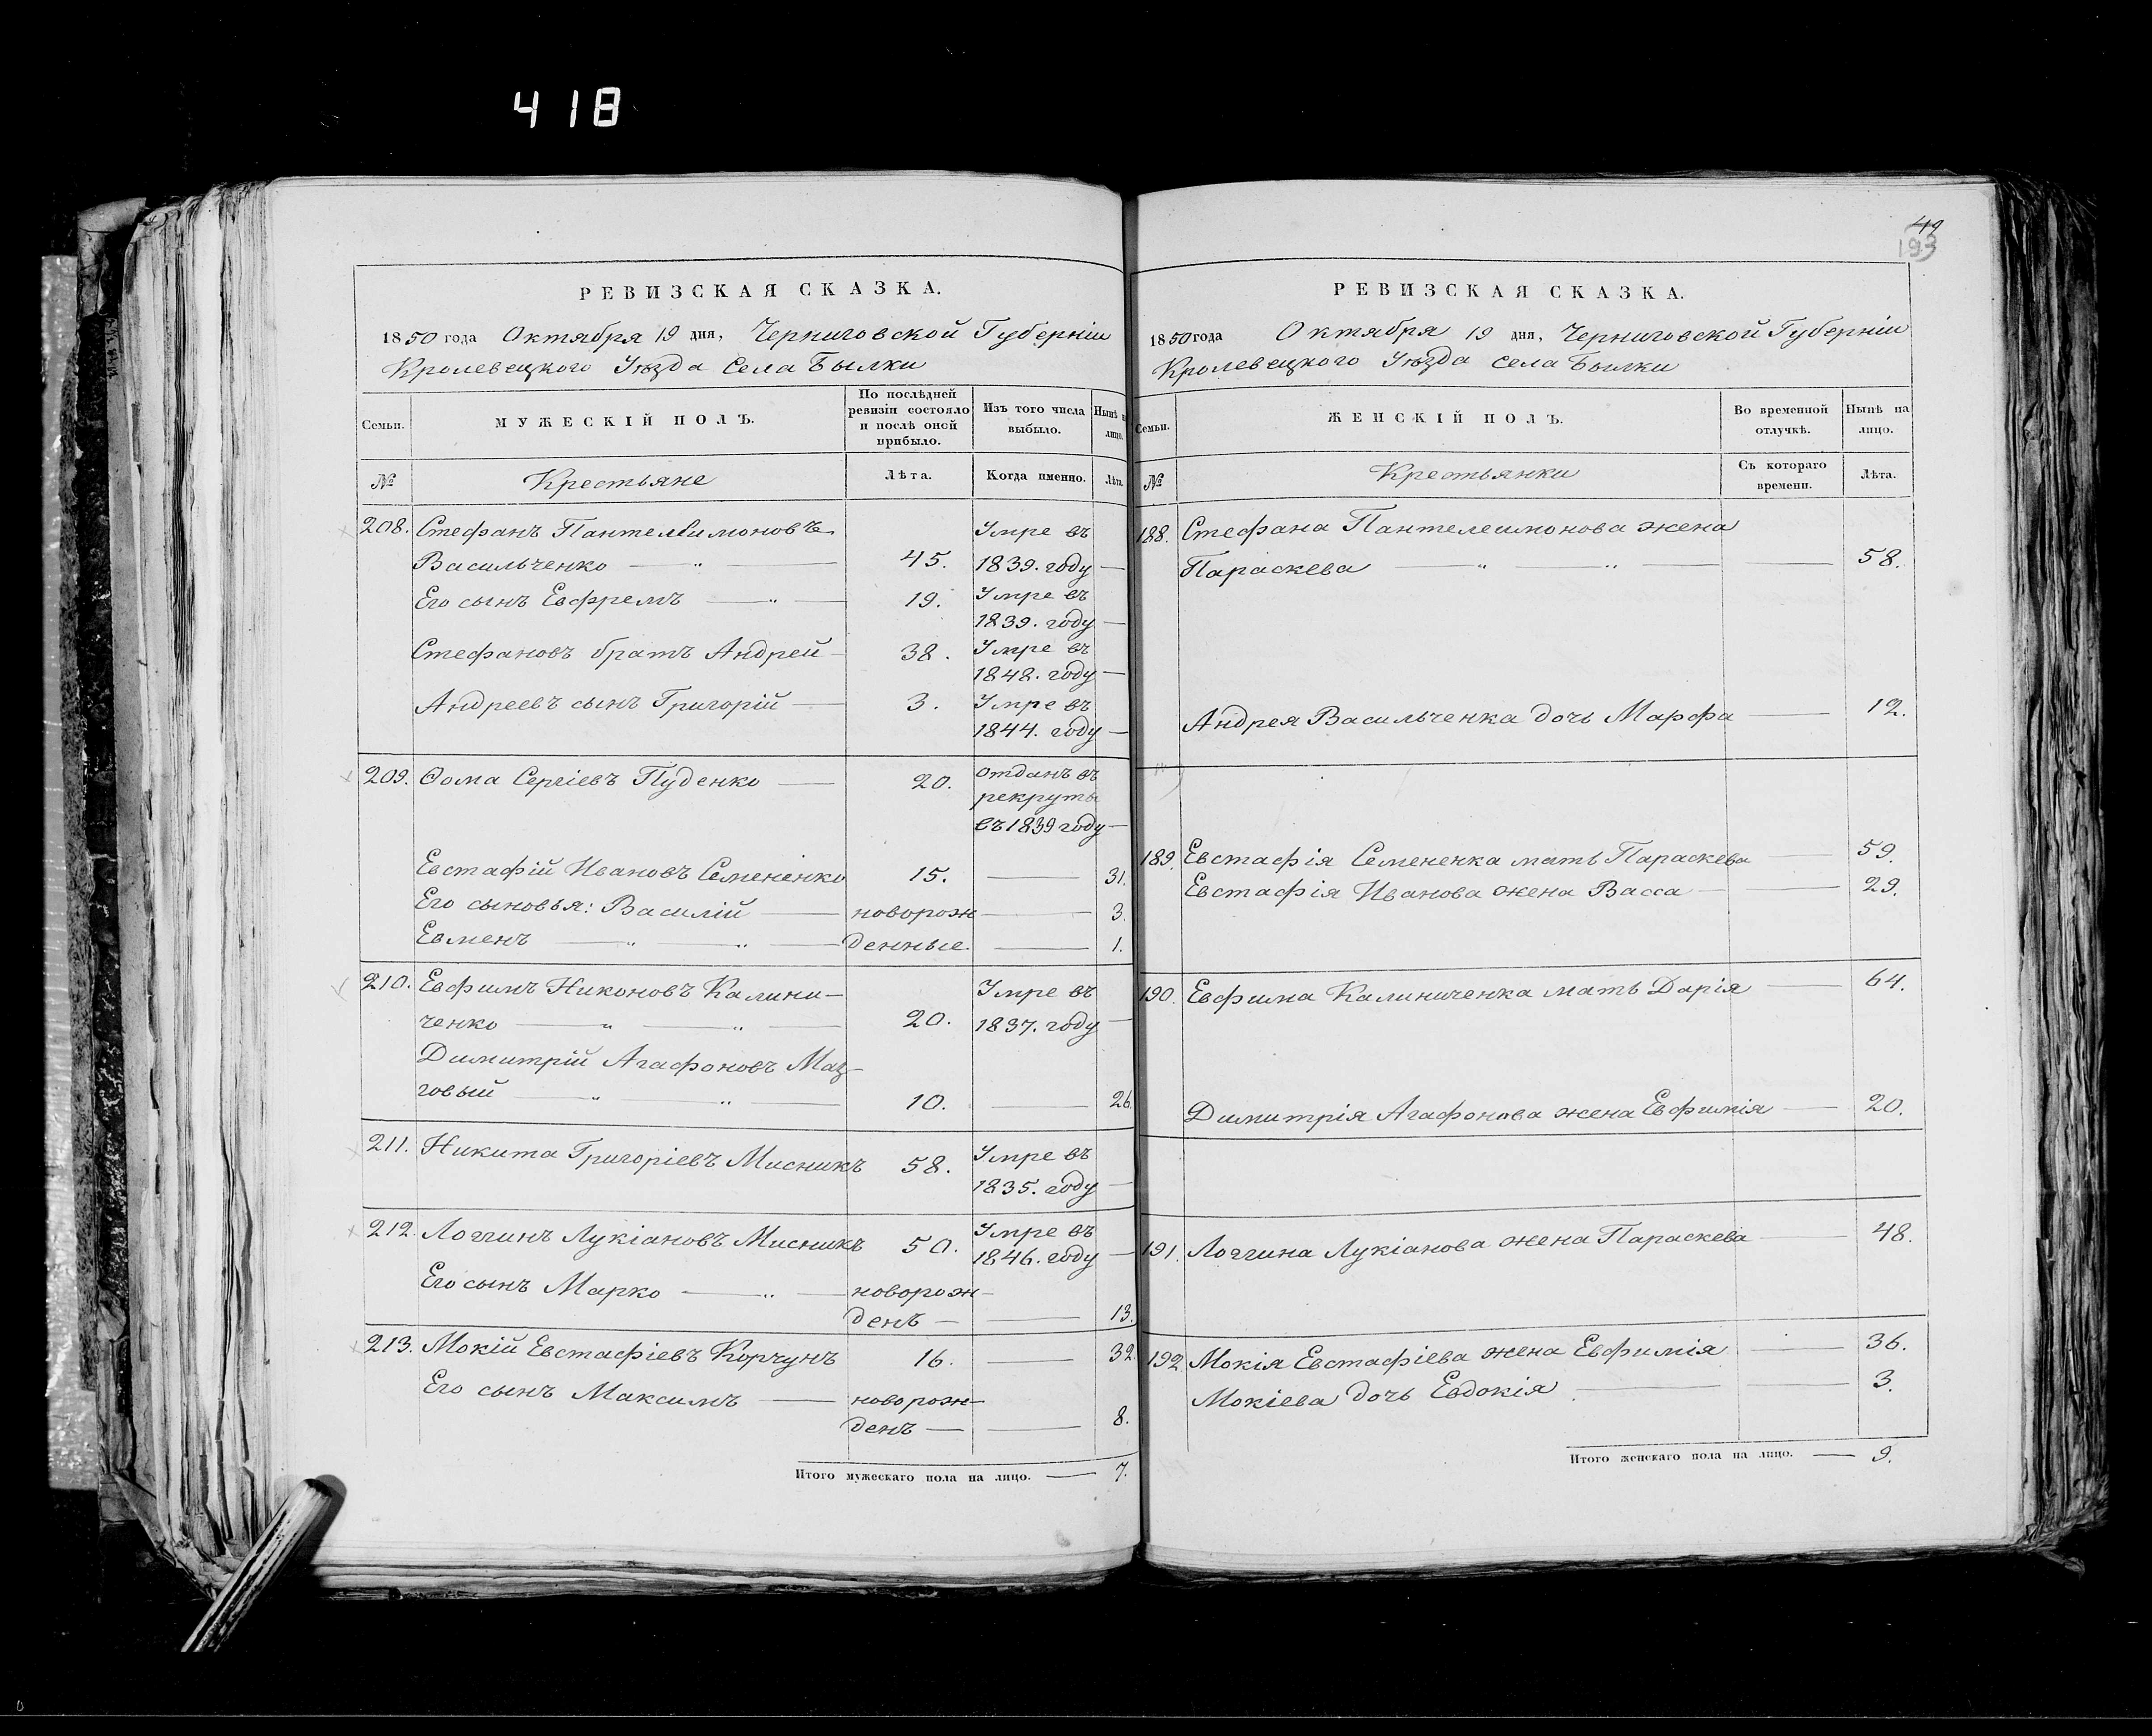 418
РЕВИЗСКАЯ СКАЗКА.
1850 года Октября 19 дня, Черниговской Губерніи
Кролевецкого Уѣзда Села Былки
Семьи.
МУЖЕСКІЙ ПОЛЪ.
По послѣдней
ревизіи состояло
и послѣ оной
прибыло.
Изъ того числа
выбыло.
Нынѣ на
лицо.
№
Крестьяне
Лѣта.
Когда именно.
Лѣта.
208. Стефанъ Пантелеимоновъ Умре въ
Васильченко — „ — 45. 1839. году —
Его сынъ Евфремъ — „ — 19. Умре въ
1839. году —
Стефановъ братъ Андрей — 38. Умре въ
1848. году —
Андреевъ сынъ Григорій — 3. Умре въ
1844. году —
209. Ѳома Сергіевъ Пуденко — 20. отданъ въ
рекруты
въ 1839 году —
Евстафій Ивановъ Семененко 15. — 31.
Его сыновья: Василій — новорож — 3.
Евменъ — „ — „ — денные. — 1.
210. Евфимъ Никоновъ Калини- Умре въ
ченко — „ — „ — 20. 1837. году —
Димитрій Агафоновъ Маз-
говый — „ — „ — 10. — 26.
211. Никита Григоріевъ Мисникъ 58. Умре въ
1835. году —
212. Логгинъ Лукіановъ Мисникъ 50. Умре въ
1846. году —
Его сынъ Марко — „ — новорож-
денъ — — 13.
213. Мокій Евстафіевъ Корчунъ 16. — 32.
Его сынъ Максимъ — новорож-
денъ — — 8.
Итого мужескаго пола на лицо. — 7.
49
193
РЕВИЗСКАЯ СКАЗКА.
1850 года Октября 19 дня, Черниговской Губерніи
Кролевецкого Уѣзда села Былки
Семьи.
ЖЕНСКІЙ ПОЛЪ.
Во временной
отлучкѣ.
Нынѣ на
лицо.
№
Крестьянки
Съ котораго
времени.
Лѣта.
188. Стефана Пантелеимонова жена
Параскева — „ — „ — — 58.
Андрея Васильченка дочь Марфа — 12.
189. Евстафія Семененка мать Параскева — 59.
Евстафія Иванова жена Васса — — 29.
190. Евфима Калиниченка мать Дарія — 64.
Димитрія Агафонова жена Евфимія — 20.
191. Логгина Лукіанова жена Параскева — 48.
192. Мокія Евстафіева жена Евфимія — 36.
Мокіева дочь Евдокія — — 3.
Итого женскаго пола на лицо. — 9.